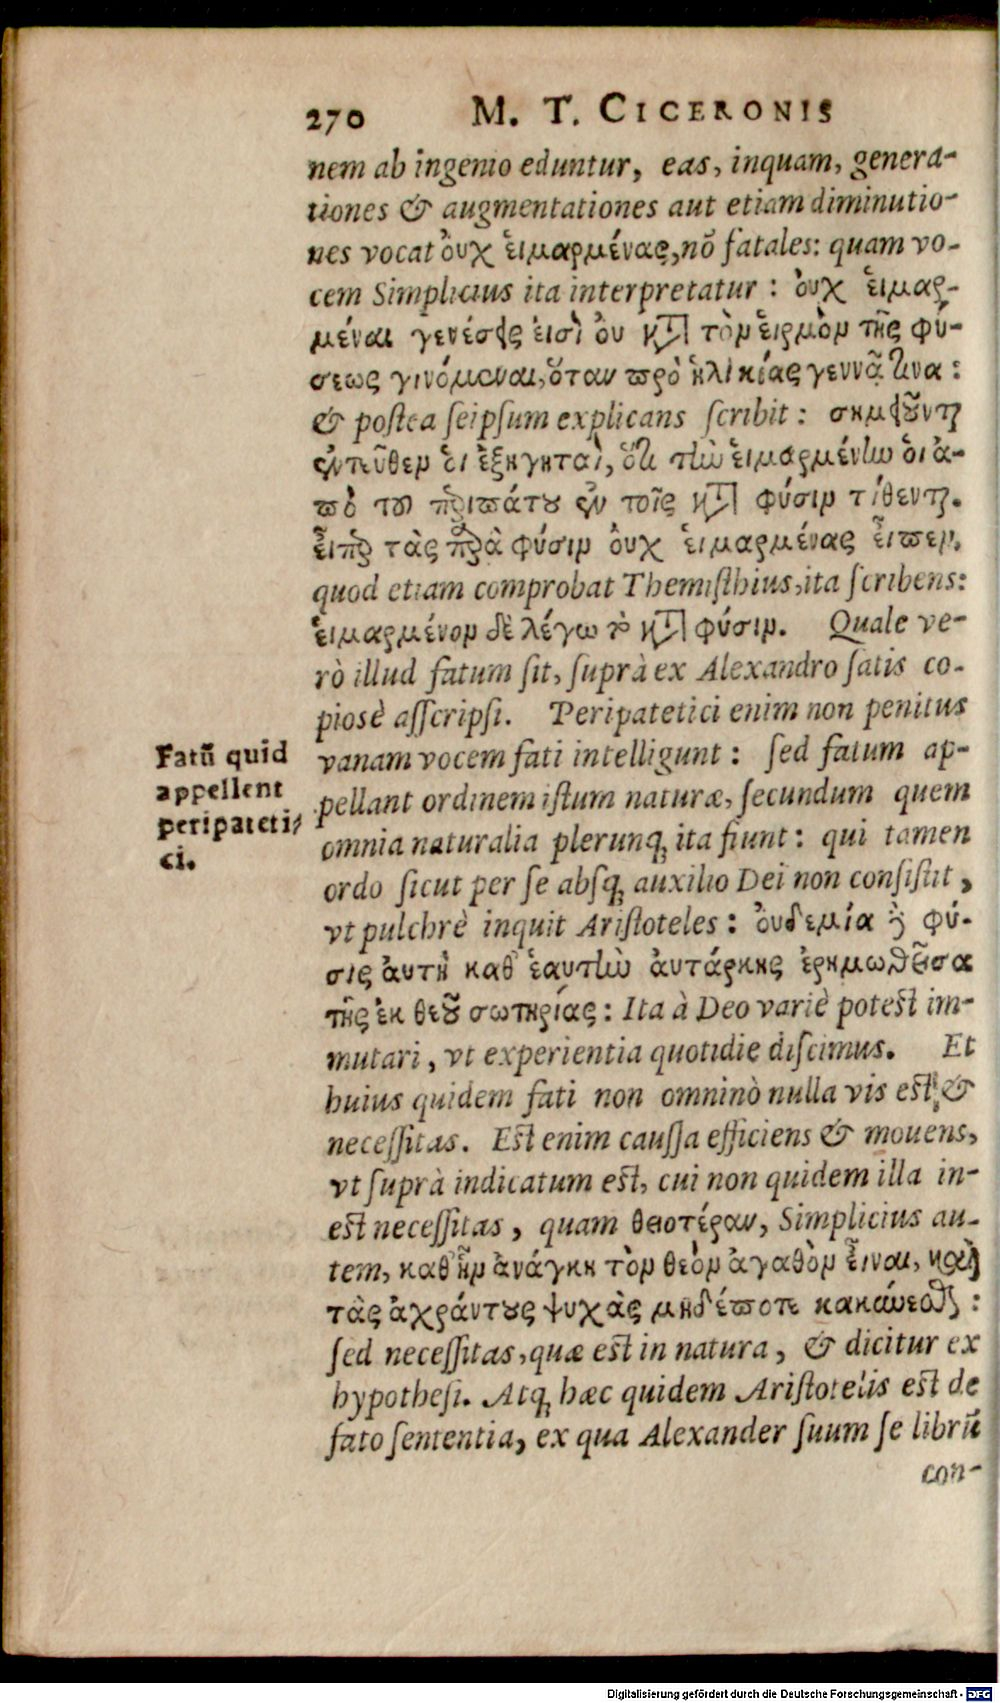 270 M. T. CICERONIS
nem ab ingenio eduntur, eas, inquam, genera-
tiones & augmentationes aut etiam diminutio-
nes vocat ὀυχ ἑιμαρμένας, nõ fatales: quam vo-
cem Simplicius ita interpretatur: ὀυχ ἑιμαρ-
μέναι γενέσεις ἐισὶ ὀυ κατὰ τὸν ἑιρμὸν τῆς φύ-
σεως γινόμεναι, ὅταν πρὸ ἡλικίας γεννᾷ τινα:
& postea seipsum explicans scribit: σημειοῦνται
ἐντεῦθεν ὁι ἐξηγηταὶ, ὅτι τὴν ἑιμαρμένην ὁι ἀ-
πὸ τοῦ περιπάτου ἐν τοῖς κατὰ φύσιν τίθενται.
εἴπερ τὰς παρὰ φύσιν ὀυχ ἑιμαρμένας εἶπεν.
quod etiam comprobat Themisthius, ita scribens:
ἑιμαρμένον δὲ λέγω τὸ κατὰ φύσιν. Quale ve-
rò illud fatum sit, suprà ex Alexandro satis co-
piosè asscripsi. Peripatetici enim non penitus
vanam vocem fati intelligunt: sed fatum ap-
pellant ordinem istum naturæ, secundum quem
omnia naturalia plerunq; ita fiunt: qui tamen
ordo sicut per se absq; auxilio Dei non consistit,
vt pulchrè inquit Aristoteles: ὀυδεμία ἡ φύ-
σις ἀυτὴ καθ' ἑαυτὴν ἀυτάρκης ἐρημωθεῖσα
τῆς ἐκ θεοῦ σωτηρίας: Ita à Deo variè potest im-
mutari, vt experientia quotidie discimus. Et
huius quidem fati non omninò nulla vis est, &
necessitas. Est enim caussa efficiens & mouens,
vt suprà indicatum est, cui non quidem illa in-
est necessitas, quam θειοτέραν, Simplicius au-
tem, καθ' ἣν ἀνάγκη τὸν θεὸν ἀγαθὸν εἶναι, καὶ
τὰς ἀχράντους ψυχὰς μηδέποτε κακύνεσθαι:
sed necessitas, quæ est in natura, & dicitur ex
hypothesi. Atq; hæc quidem Aristotelis est de
fato sententia, ex qua Alexander suum se librũ
con-
Fatũ quid
appellent
peripateti-
ci.
Digitalisierung gefördert durch die Deutsche Forschungsgemeinschaft - DFG